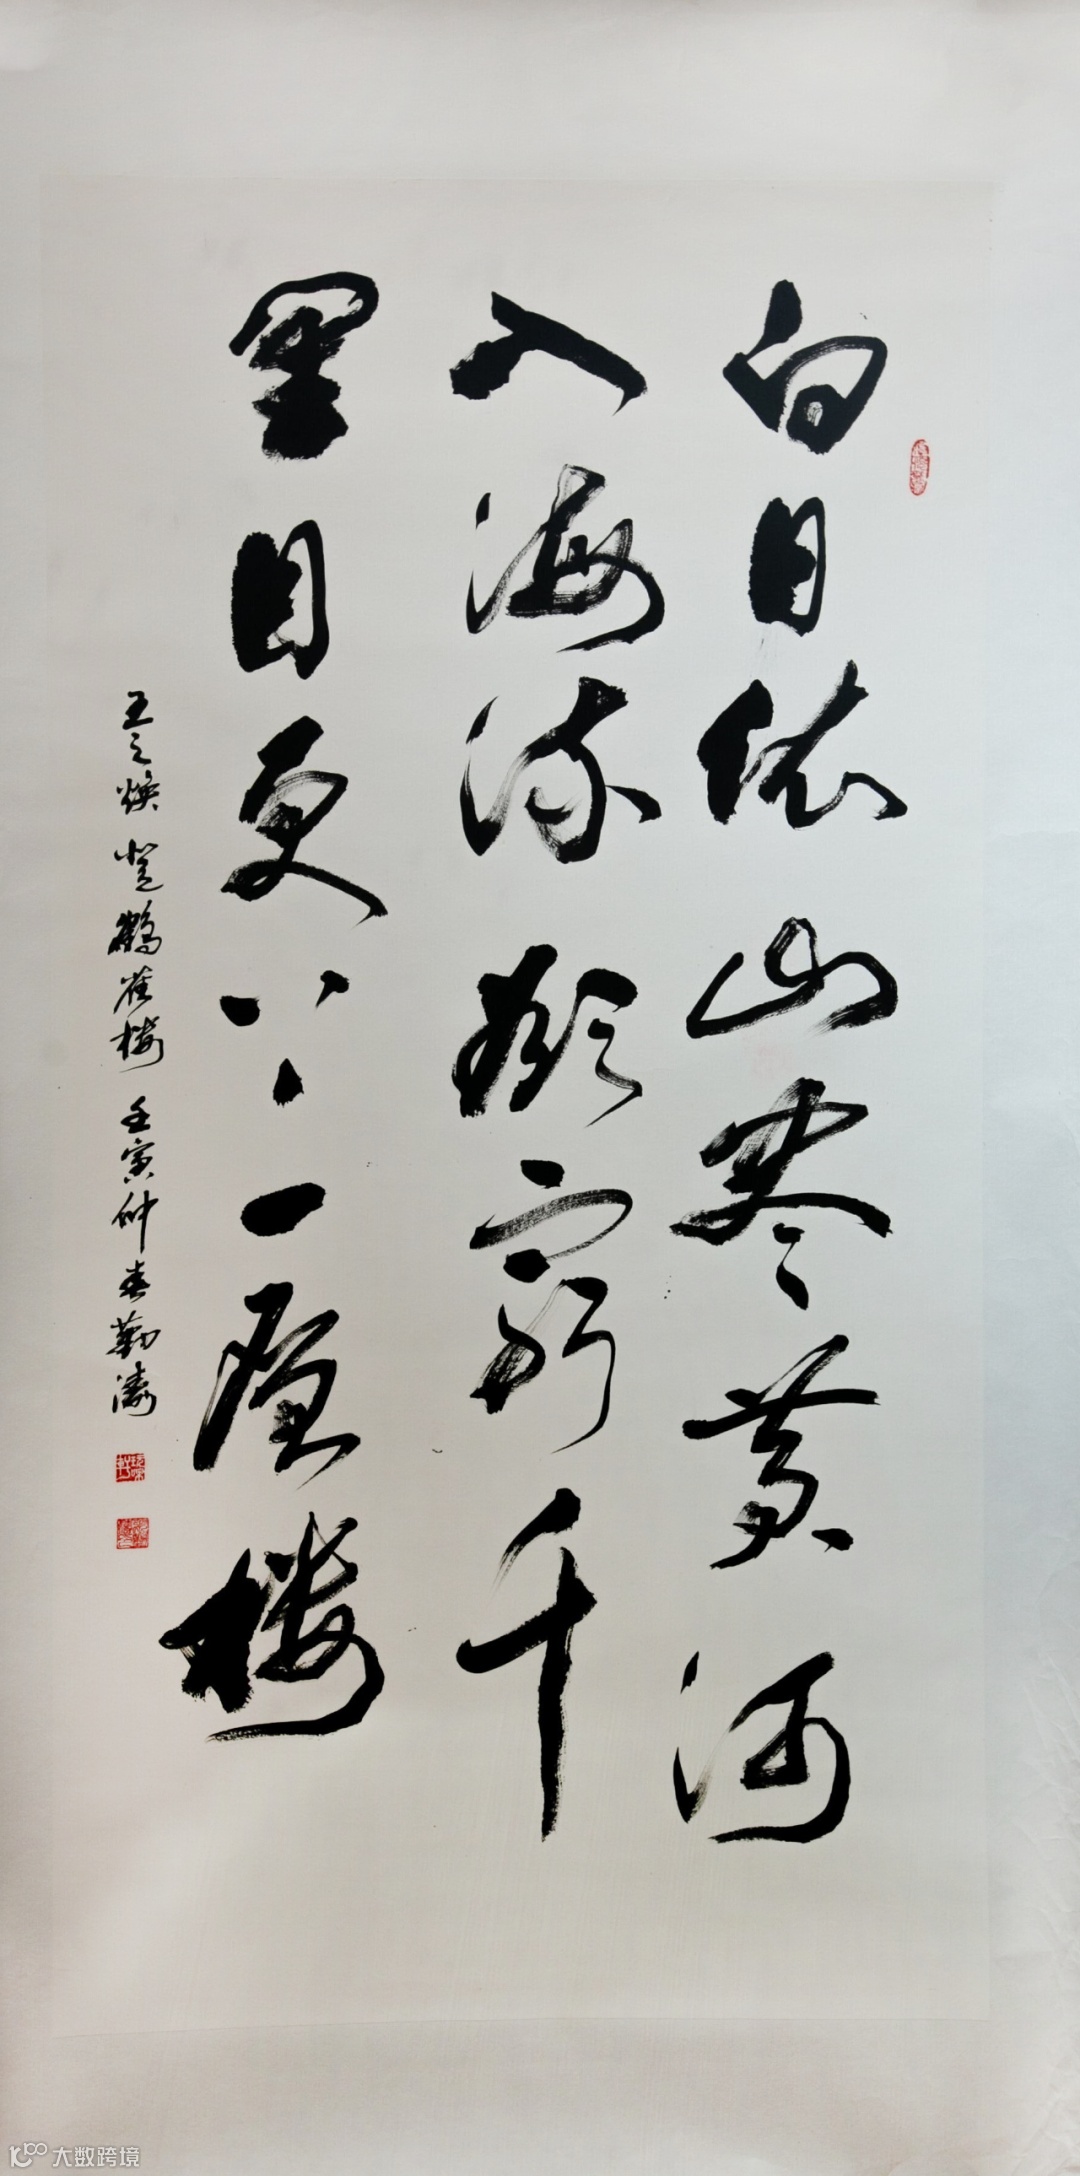 白日依山尽黄河
入海流欲穷千
里目更上一层楼
王之焕登鹳雀楼 壬寅仲春勤涛
大数跨境